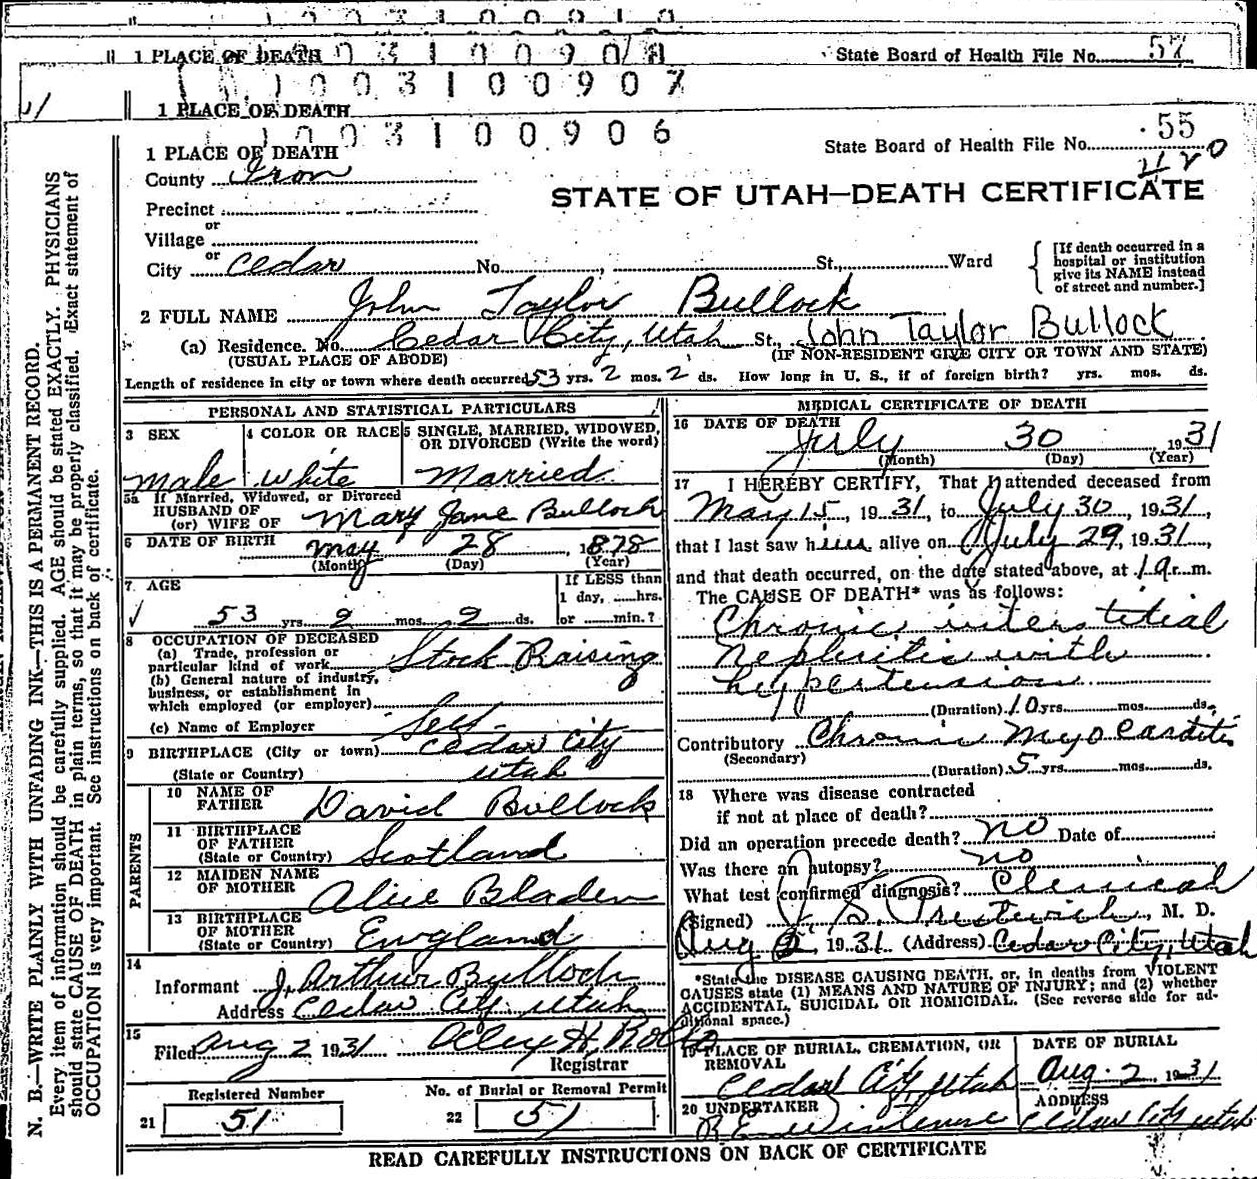 1 0 0 3 1 0 0 9 1 0
1 PLACE OF DEATH 1 0 0 3 1 0 0 9 0 8 State Board of Health File No. 57
1 0 0 3 1 0 0 9 0 7
1 PLACE OF DEATH
1 0 0 3 1 0 0 9 0 6
1 PLACE OF DEATH State Board of Health File No. 55
County Iron
STATE OF UTAH—DEATH CERTIFICATE
Precinct
or
Village
or
City Cedar No. , St., Ward
[If death occurred in a hospital or institution give its NAME instead of street and number.]
2 FULL NAME John Taylor Bullock
(a) Residence. No. Cedar City, Utah St., John Taylor Bullock
(USUAL PLACE OF ABODE) (IF NON-RESIDENT GIVE CITY OR TOWN AND STATE)
Length of residence in city or town where death occurred 53 yrs. 2 mos. 2 ds. How long in U. S., if of foreign birth? yrs. mos. ds.
PERSONAL AND STATISTICAL PARTICULARS
3 SEX 4 COLOR OR RACE 5 SINGLE, MARRIED, WIDOWED, OR DIVORCED (Write the word)
Male White Married
5a If Married, Widowed, or Divorced
HUSBAND OF
(or) WIFE OF Mary Jane Bullock
6 DATE OF BIRTH May 28, 1878
(Month) (Day) (Year)
7 AGE If LESS than
1 day, hrs.
53 yrs. 2 mos. 2 ds. or min.?
8 OCCUPATION OF DECEASED
(a) Trade, profession or
particular kind of work Stock Raising
(b) General nature of industry,
business, or establishment in
which employed (or employer)
(c) Name of Employer Self
9 BIRTHPLACE (City or town) Cedar City
(State or Country) Utah
PARENTS
10 NAME OF
FATHER David Bullock
11 BIRTHPLACE
OF FATHER
(State or Country) Scotland
12 MAIDEN NAME
OF MOTHER Alice Bladen
13 BIRTHPLACE
OF MOTHER
(State or Country) England
14
Informant J. Arthur Bulloch
Address Cedar City Utah
15
Filed Aug 2 1931
Registrar
Registered Number No. of Burial or Removal Permit
21 51 22 51
MEDICAL CERTIFICATE OF DEATH
16 DATE OF DEATH
July 30 1931
(Month) (Day) (Year)
17 I HEREBY CERTIFY, That I attended deceased from
May 15, 1931, to July 30, 1931,
that I last saw him alive on July 29, 1931,
and that death occurred, on the date stated above, at 1 a.m.
The CAUSE OF DEATH* was as follows:
Chronic interstitial
nephritis with
hypertension
(Duration) 10 yrs. mos. ds.
Contributory Chronic Myocarditis
(Secondary)
(Duration) 5 yrs. mos. ds.
18 Where was disease contracted
if not at place of death?
Did an operation precede death? no Date of
Was there an autopsy? no
What test confirmed diagnosis? Clinical
(Signed) , M. D.
Aug 2 1931 (Address) Cedar City, Utah
*State the DISEASE CAUSING DEATH, or, in deaths from VIOLENT
CAUSES state (1) MEANS AND NATURE OF INJURY; and (2) whether
ACCIDENTAL, SUICIDAL OR HOMICIDAL. (See reverse side for ad-
ditional space.)
19 PLACE OF BURIAL, CREMATION, OR REMOVAL DATE OF BURIAL
Cedar City, Utah Aug. 2, 1931
20 UNDERTAKER ADDRESS
Cedar City Utah
READ CAREFULLY INSTRUCTIONS ON BACK OF CERTIFICATE
N. B.—WRITE PLAINLY WITH UNFADING INK—THIS IS A PERMANENT RECORD.
Every item of information should be carefully supplied. AGE should be stated EXACTLY. PHYSICIANS
should state CAUSE OF DEATH in plain terms, so that it may be properly classified. Exact statement of
OCCUPATION is very important. See instructions on back of certificate.